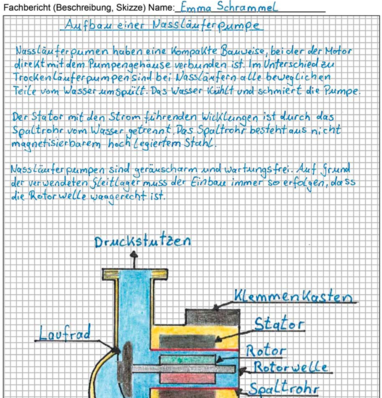 Fachbericht (Beschreibung, Skizze) Name: Emma Schrammel
Aufbau einer Nassläuferpumpe
Nassläuferpumen haben eine kompakte Bauweise, bei der der Motor
direkt mit dem Pumpengehäuse verbunden ist. Im Unterschied zu
Trockenläuferpumpen sind bei Nassläufern alle beweglichen
Teile vom Wasser umspült. Das Wasser kühlt und schmiert die Pumpe.
Der Stator mit den Strom führenden Wicklungen ist durch das
Spaltrohr vom Wasser getrennt. Das Spaltrohr besteht aus nicht
magnetisierbarem hochlegiertem Stahl.
Nassläuferpumpen sind geräuscharm und wartungsfrei. Auf grund
der verwendeten Gleitlager muss der Einbau immer so erfolgen, dass
die Rotorwelle waagerecht ist.
Druckstutzen
Klemmenkasten
Stator
Laufrad
Rotor
Rotorwelle
Spaltrohr